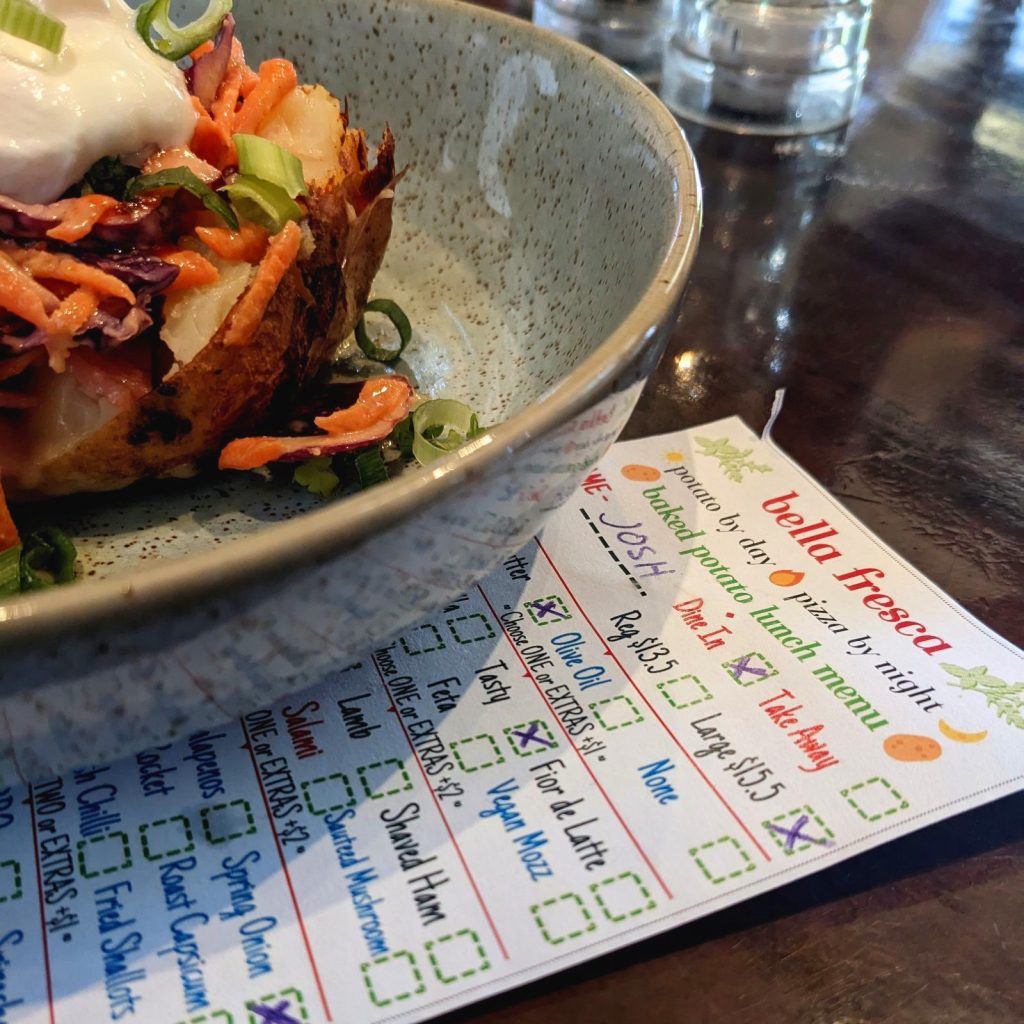 bella fresca
potato by day pizza by night
baked potato lunch menu
JOSH
Dine In Take Away
Reg $13.5 Large $15.5
Olive Oil None
"Choose ONE or EXTRAS +$1"
Tasty Fior de Latte
Feta Vegan Mozz
ONE or EXTRAS +$2"
Lamb Shaved Ham
Salami Sauteed Mushroom
ONE or EXTRAS +$2"
Spring Onion
Rocket Roast Capsicum
Chilli Fried Shallots
TWO or EXTRAS +$1"